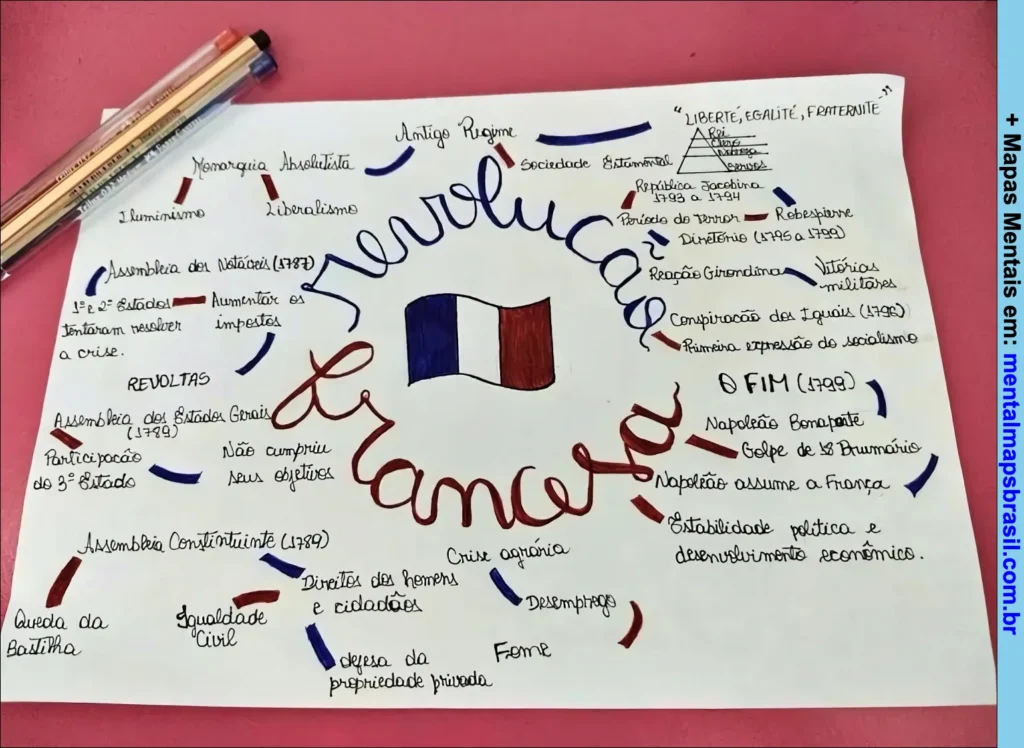 "LIBERTÉ, EGALITÉ, FRATERNITE"
Antigo Regime
Rei
Clero
Nobreza
Servos
Monarquia Absolutista
Sociedade Estamental
Iluminismo
Liberalismo
República Jacobina
1793 a 1794
Período do Terror
Robespierre
Diretório (1795 a 1799)
Reação Girondina
Vitórias
militares
Conspiração dos Iguais (1796)
Primeira expressão do socialismo
O FIM (1799)
Napoleão Bonaparte
Golpe de 18 Brumário
Napoleão assume a França
Estabilidade política e
desenvolvimento econômico.
revolução
Francesa
Assembleia dos Notáveis (1787)
1º e 2º Estados
tentaram resolver
a crise.
Aumentar os
impostos
REVOLTAS
Assembleia dos Estados Gerais
(1789)
Participação
do 3º Estado
Não cumpriu
seus objetivos
Assembleia Constintuinte (1789)
Queda da
Bastilha
Igualdade
Civil
Direitos dos homens
e cidadãos
defesa da
propriedade privada
Crise agrária
Desemprego
Fome
+ Mapas Mentais em: mentalmapsbrasil.com.br